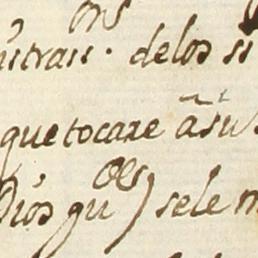 ons
istran. de los si
que tocare a su
Dios gu) se le m